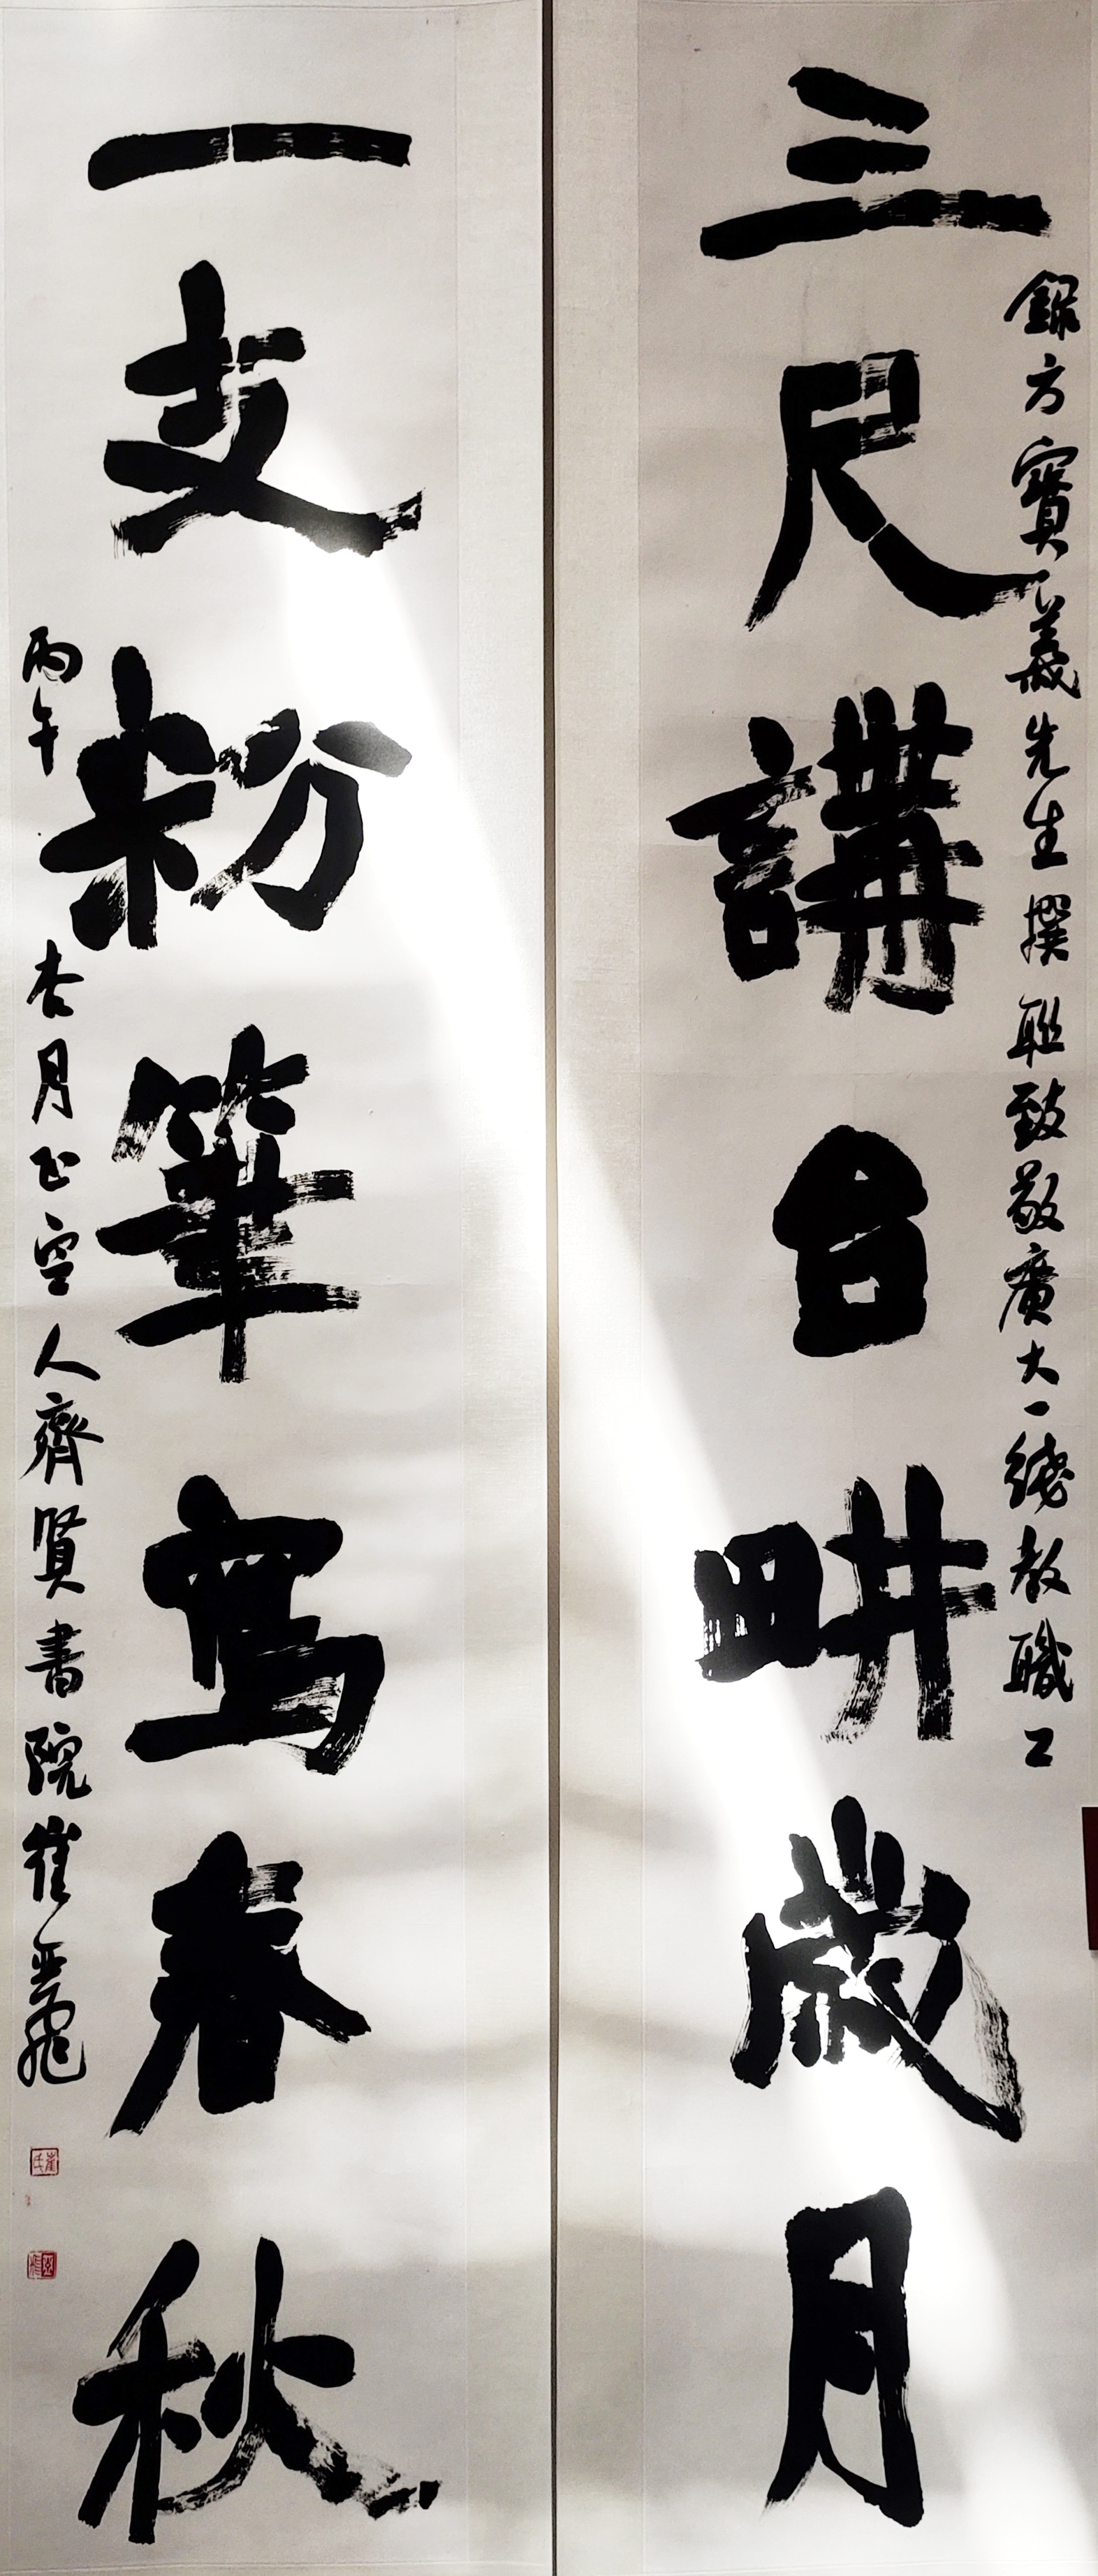 錄方寶義先生撰聯致敬廣大一綫教職工
三尺講台畊歲月
一支粉筆寫春秋
丙午杏月空人齊賢書院崔亞飛
崔氏